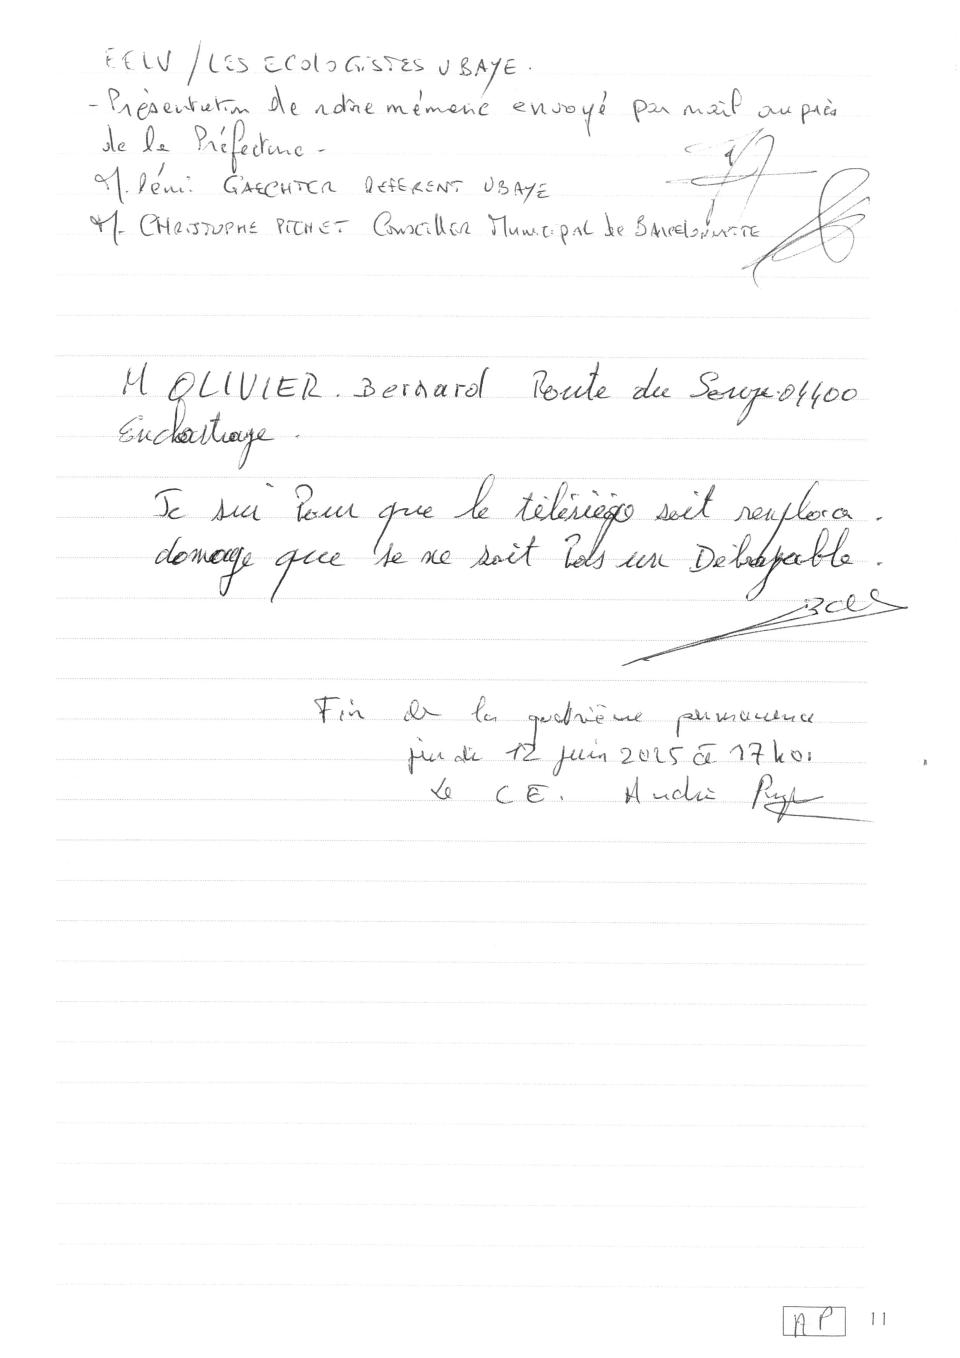 EELV / LES ECOLOGISTES UBAYE.
- Présentation de notre mémoire envoyé par mail auprès
de la Préfecture -
M. Rémi GAECHTER REFERENT UBAYE
M. CHRISTOPHE PICHET Conseiller Municipal de BARCELONNETTE
M OLIVIER. Bernard Route du Sauze 04400
Enchastraye.
Je sui Pour que le télésiège soit remplacé.
domage que se ne soit Pas un Débrayable.
Fin de la quatrième permanence
jeudi 12 juin 2025 à 17h01
Le CE. André
AP 11